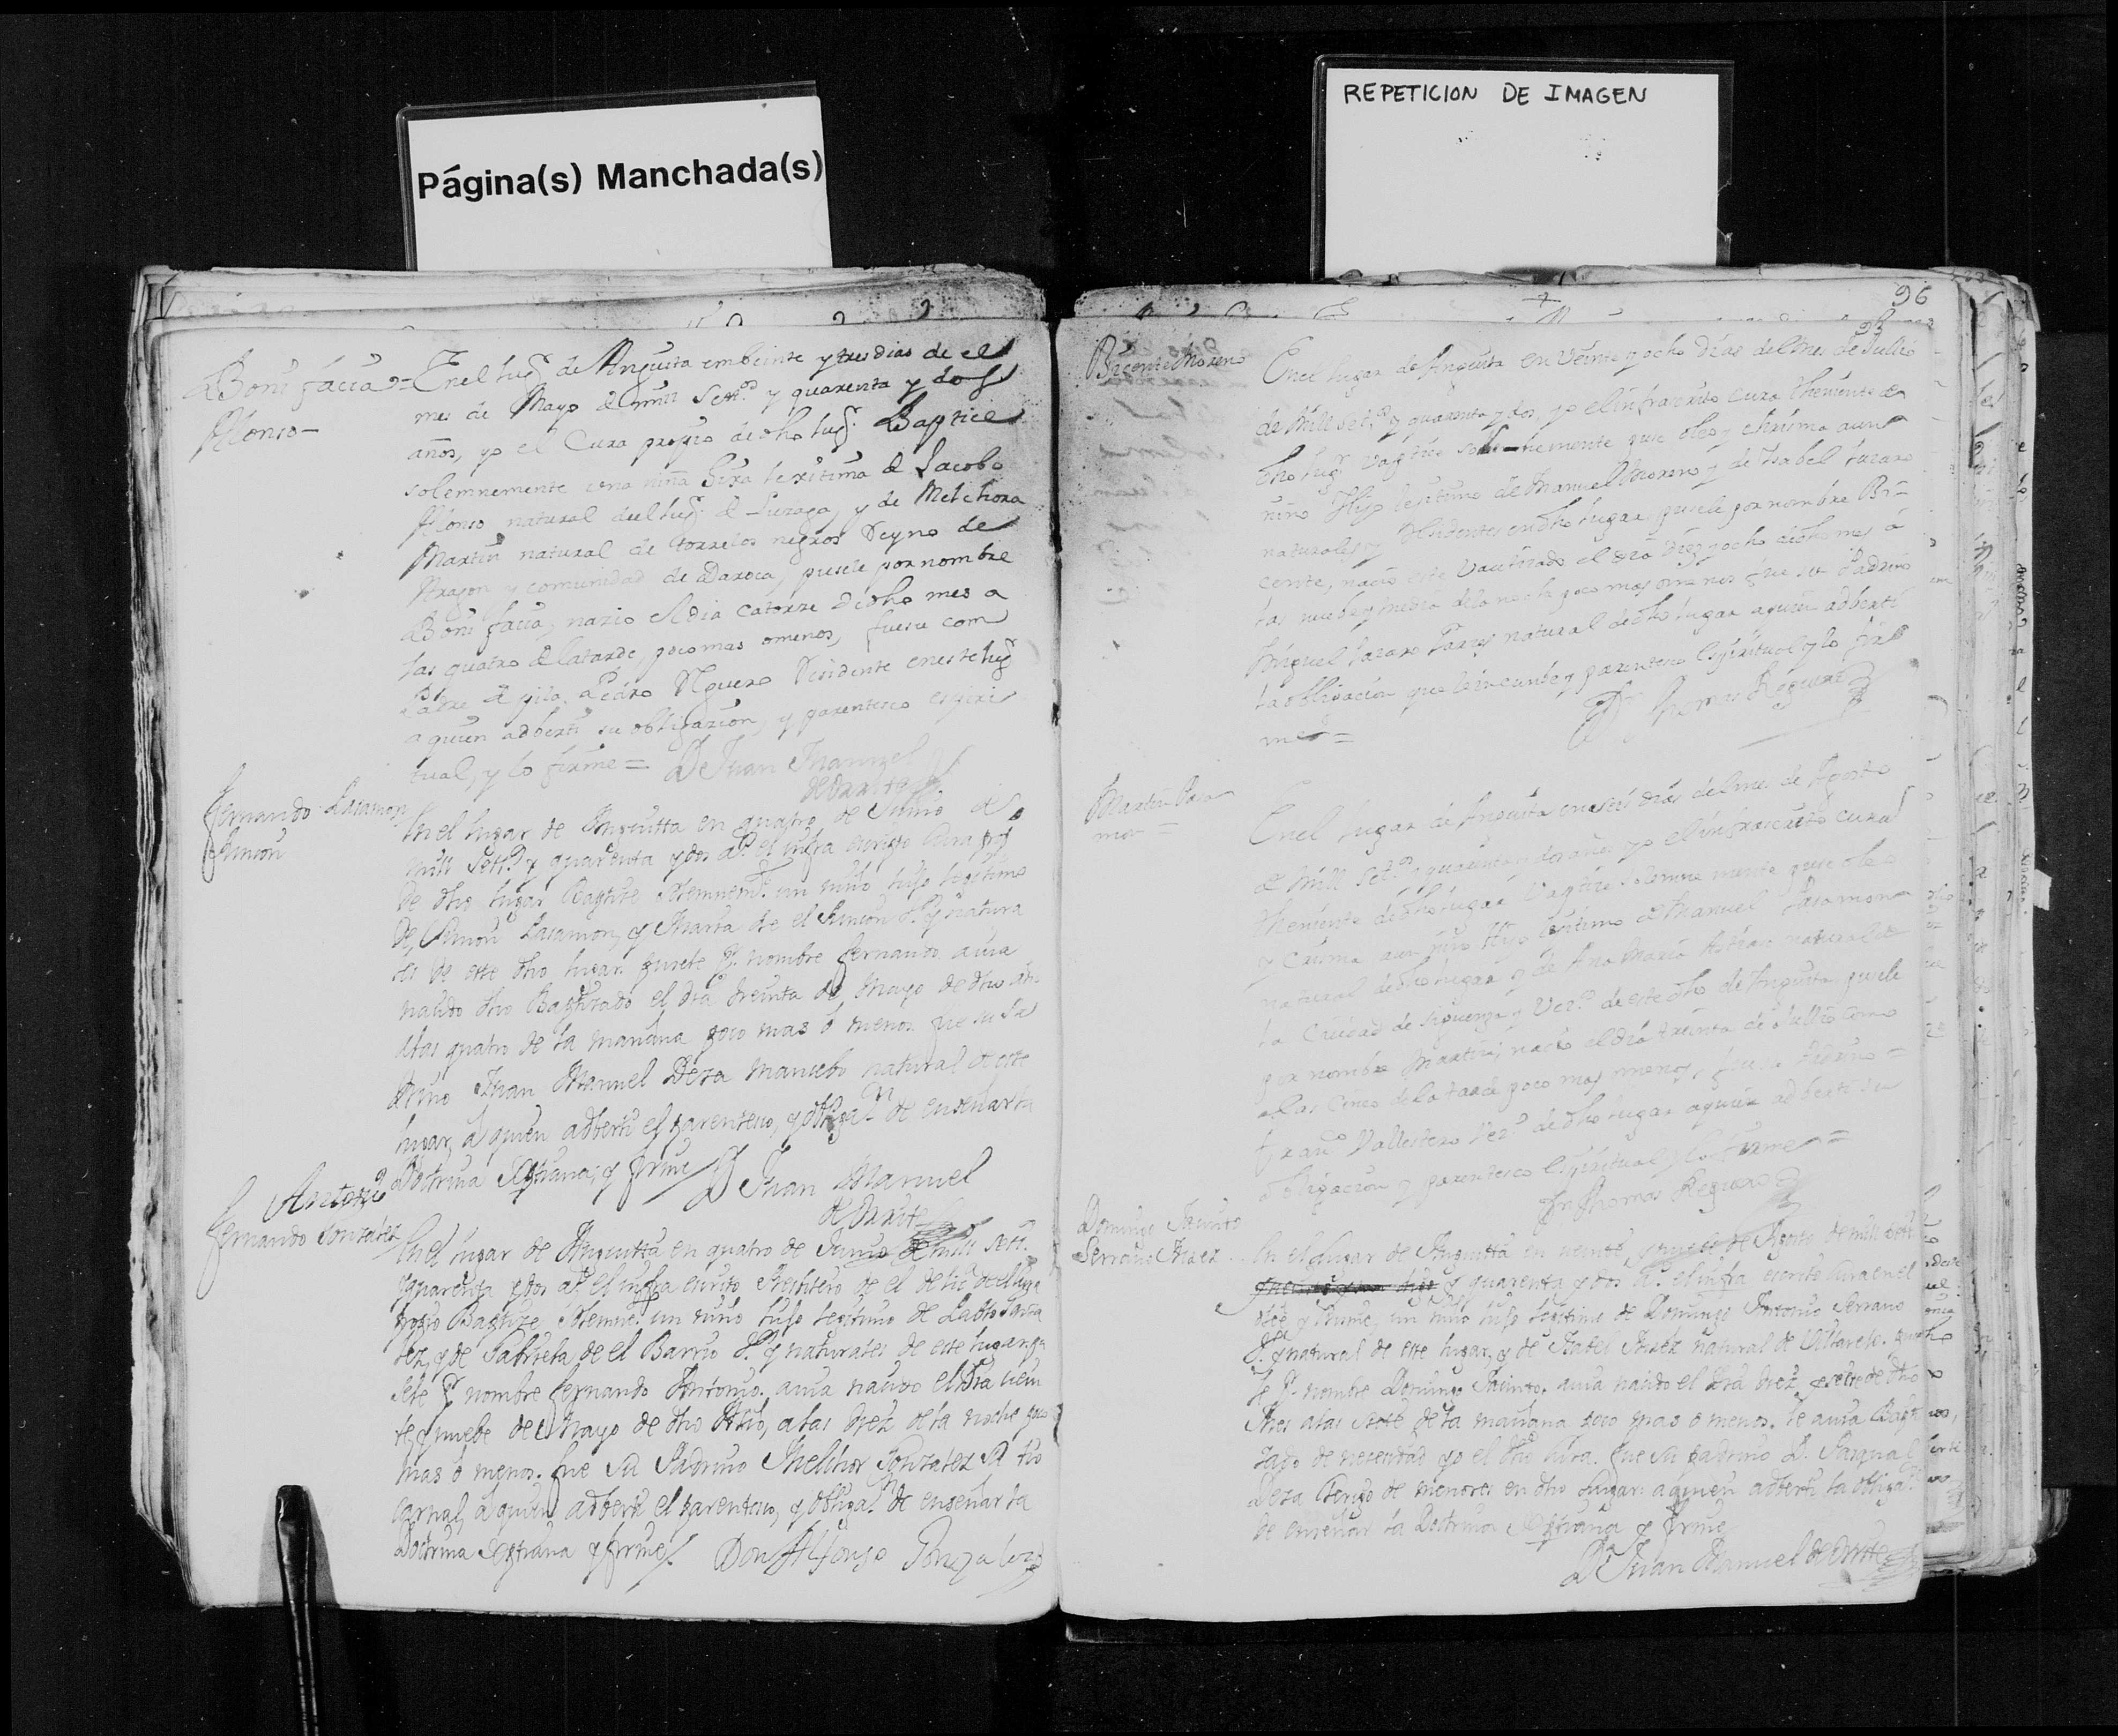 Página(s) Manchada(s)
REPETICION DE IMAGEN
Bonifacia
Alonso
En el lug.r de Anguita em beinte y tres dias de el
mes de Mayo de mill Sett.os y quarenta y dos
años, yo el Cura propio de dho lug.r Baptice
solemnemente una niña hixa lexitima de Jacobo
Alonso natural del lug.r de Luzaga, y de Melchora
Martin natural de torre los negros Reyno de
Aragon y comunidad de Daroca, pusele por nombre
Bonifacia, nazio el dia catorze de dho mes a
las quatro de la tarde, poco mas o menos, fue su com
Padre de pila Pedro Reguero Residente en este lug.r
a quien adberti su obligazion, y parentesco espiri
tual, y lo firme = D Juan Manuel
Fernando Lacamon
Simon
En el lugar de Anguitta en quatro de Junio de
mill Sett.s y quarenta y dos a.s el infra escripto Cura prop
de dho lugar Baptize Solemnem.te un niño hijo legitimo
de Simon Lacamon, y Maria de el Simon V.s y natura
les de este dho lugar. pusele p.r nombre Fernando. auia
nacido dho Baptizado el dia treinta de Mayo de dho
alas quatro de la mañana poco mas ó menos. fue su Pa
drino Juan Manuel Deza mancebo natural de este
lugar, á quien adberti el parentesco, y obliga.n de enseñar la
Doctrina Xptiana, y firme D Juan Manuel
Fernando Antonio
Gonzalez
En el lugar de Anguitta en quatro de Junio de mill Sett.s
y quarenta y dos a.s el infra escrito Presbitero de el de lic.a de el Cura
propio Baptize Solemne.te un niño hijo legitimo de Pablo Gonza
lez, y de Gabriela de el Barrio V.s y naturales de este lugar. pu
sele p.r nombre Fernando Antonio. auia nacido el dia vein
te y nuebe de Mayo de dho Año, a las diez de la noche poco
mas ó menos. fue su Padrino Melchor Gonzalez su tio
carnal, á quien adberti el parentesco, y obliga.n de enseñar la
Doctrina Xptiana y firme Don Alfonso Gonzalez
96
Bicente Moreno
En el lugar de Anguita en veinte y ocho dias del mes de Jullio
de mill set.os y quarenta y dos, yo el infraescrito cura theniente de
dho lug.r Vaptice solemnemente puse oleo y chrisma a un
niño Hijo lexitimo de Manuel Moreno y de Isabel Lazaro
naturales y Residentes en dho lugar, pusele por nombre Bi=
cente, nació este Vautizado el dia diez y ocho de dho mes á
las nuebe y media de la noche poco mas o menos fue su Padrino
Miguel Lazaro Parra natural de dho lugar a quien adberti
la obligacion que le incumbe y parentesco Espiritual y lo fir
me = D.n Thomas Reguero
Martin Laca
mon
En el lugar de Anguita en seis dias del mes de Agosto
de mill set.os y quarenta y dos años yo el infraescrito cura
theniente de dho lugar Vaptice solemnemente puse oleo
y Crisma a un niño Hijo lexitimo de Manuel Lacamon
natural de dho lugar y de Ana Maria natural de
la Ciudad de Siguenza y Vez.s de este dho de Anguita, pusele
por nombre Martin, nacio el dia treinta de Jullio como
a las cinco de la tarde poco mas o menos, fue su Padrino =
Fran.co Vallestero Vez.o de dho lugar a quien adberti su
obligacion y parentesco Espiritual y lo firme =
D.n Thomas Reguero
Domingo Jacinto
Serrano
En el lugar de Anguitta en veinte y nueve de Agosto de mill sett.s
y quarenta y dos a.s el infra escrito cura en el
oleo y Crisma, un niño hijo legitimo de Domingo Antonio Serrano
V.o y natural de este lugar, y de Isabel natural de Villarejo. puse
le p.r nombre Domingo Jacinto. auia nacido el dia diez y siete de dho
Mes a las siete de la mañana poco mas o menos. le auia Bapti
zado de necesidad yo el dho Cura. fue su padrino D. Pasqual
Deza Clerigo de menores en dho lugar: a quien adberti la obliga.n
de enseñar la Doctrina Xptiana y firme
D Juan Manuel